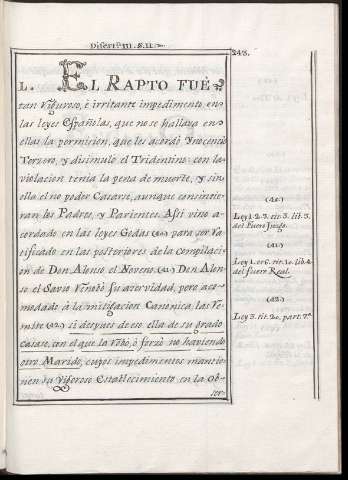 Disert.ⁿ III. §. II.
243.
L. EL RAPTO FUÉ
tan Vigoroso, è irritante impedimento, en
las leyes Españolas, que no se hallava en
ellas la permision, que les acordò Ynocencio
Terzero, y disimulo el Tridentino: con la
violacion tenia la pena de muerte, y sin
ella el no poder Casarse, aunque consintie-
ran los Padres, y Parientes. Asti vino a-
cordado en las leyes Godas (40) para ser ra-
tificado en las posteriores de la compilacion
de Don Alonso el Noveno. (41) Don Alon-
so el Savio
su acervidad, pero aco-
modado à la mitigacion Canonica, las Re-
mite (42) si despues de en ella de su grado
casase, con el que la robò, ò forzò no haviendo
otro Marido, cuyos impedimentos mantie-
nen su Vigoroso Establecimiento en la Ob-
ser-
(40)
Ley 1. 2. 3. tit. 3. lib. 3.
del Fuero Juzgo.
(41)
Ley 1. er 6. tit. 10. lib. 4.
del fuero Real.
(42)
Ley 3. tit. 20. part. 7.ª